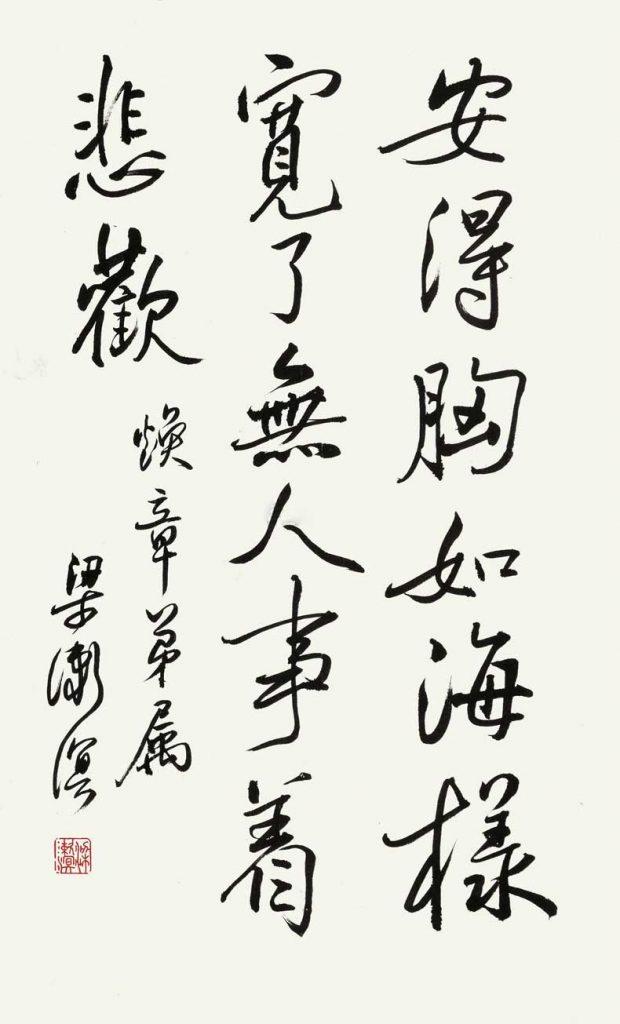 安得胸如海樣
寬了無人事着
悲歡
煥章弟屬
梁漱溟
梁漱溟